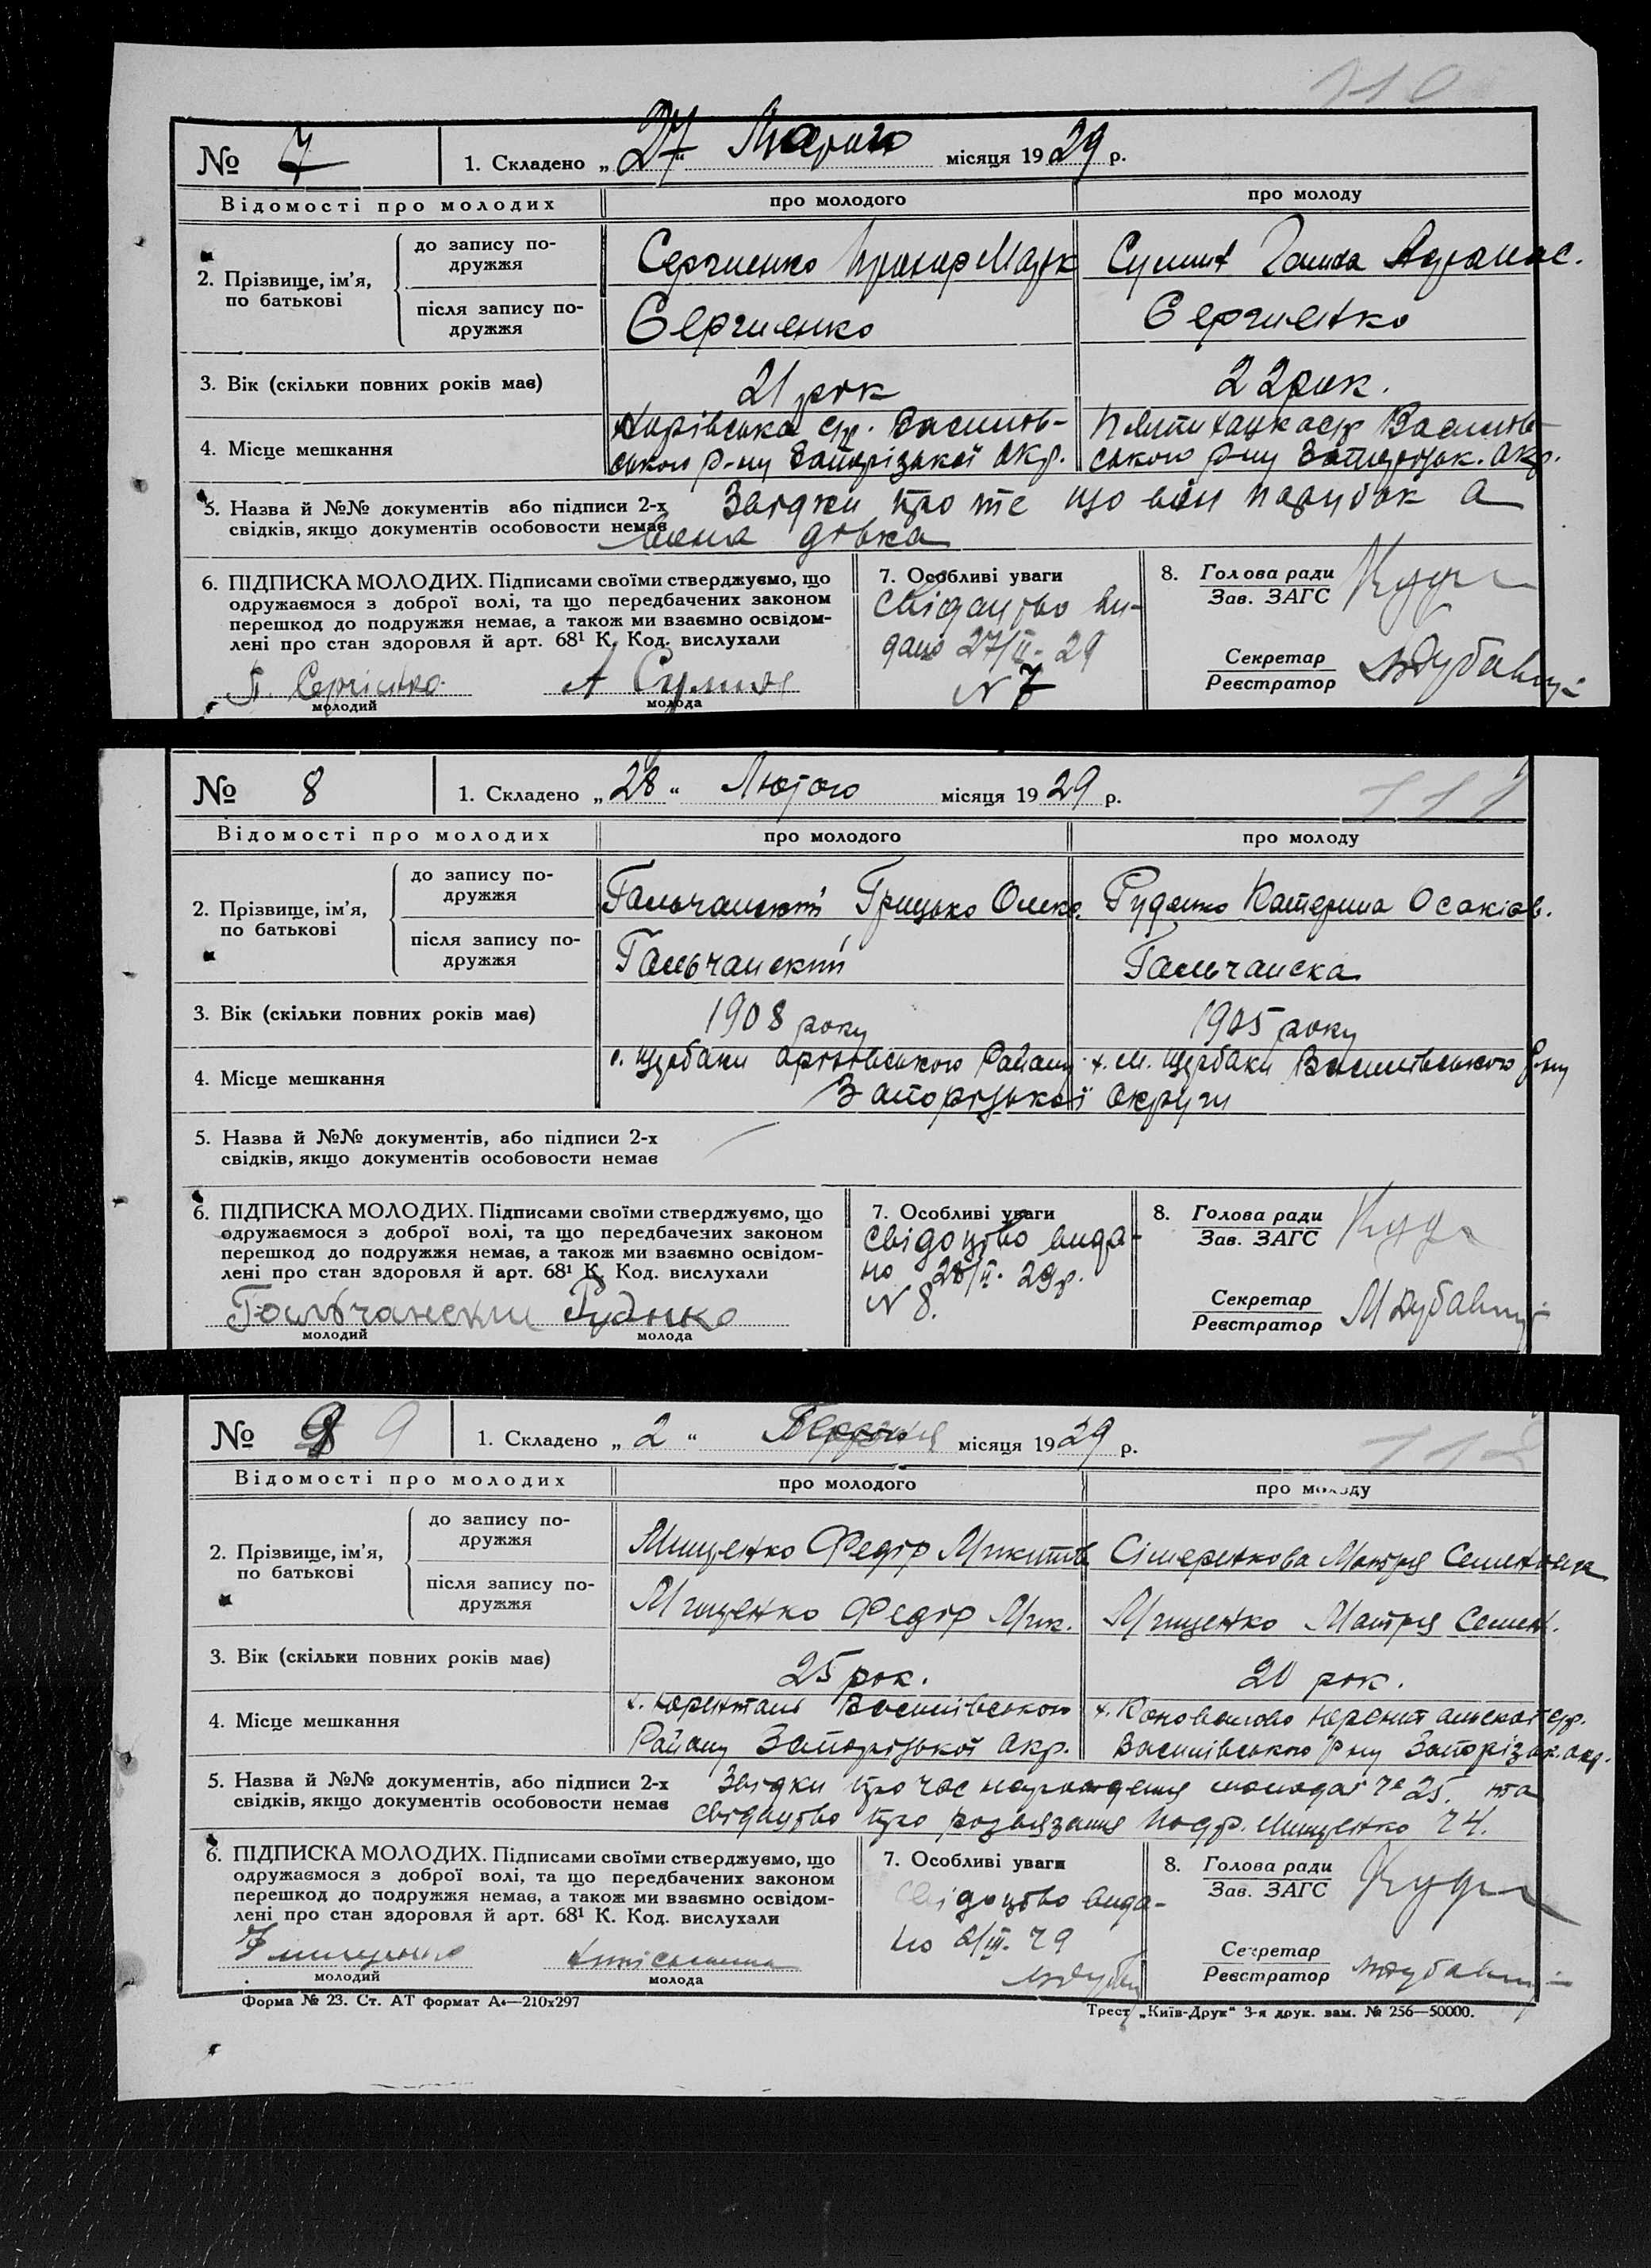 110
№ 7 1. Складено „27“ місяця 1929 р.
Відомості про молодих про молодого про молоду
2. Прізвище, ім’я, по батькові
до запису подружжя Сергиенко Сулит
після запису подружжя Сергиенко Сергиенко
3. Вік (скільки повних років має) 21 рок 22 рок.
4. Місце мешкання
ського р-ну Запорізької Окр. ського р-ну Запорізьк. Окр.
5. Назва й №№ документів або підписи 2-х Звідки про те що він парубок а
свідків, якщо документів особовости немає вона дівка
6. ПІДПИСКА МОЛОДИХ. Підписами своїми стверджуємо, що
одружаємося з доброї волі, та що передбачених законом
перешкод до подружжя немає, а також ми взаємно освідом-
лені про стан здоровля й арт. 68¹ К. Код. вислухали
молодий молода
7. Особливі уваги
свідоцтво ви-
дано 27/II-29
N 7
8. Голова ради
Зав. ЗАГС
Секретар
Реєстратор
111
№ 8 1. Складено „28“ Лютого місяця 1929 р.
Відомості про молодих про молодого про молоду
2. Прізвище, ім’я, по батькові
до запису подружжя Гальчанский Грицько Олекс. Руденко Катерина
після запису подружжя Гальчанский Гальчанска
3. Вік (скільки повних років має) 1908 року 1905 року
4. Місце мешкання с. Щербаки Оріхівського Району Щербаки Василівського р-ну
Запорізької Округи
5. Назва й №№ документів, або підписи 2-х
свідків, якщо документів особовости немає
6. ПІДПИСКА МОЛОДИХ. Підписами своїми стверджуємо, що
одружаємося з доброї волі, та що передбачених законом
перешкод до подружжя немає, а також ми взаємно освідом-
лені про стан здоровля й арт. 68¹ К. Код. вислухали
Гальчанский Руднко
молодий молода
7. Особливі уваги
свідоцтво вида-
но 28/II-29р.
N 8.
8. Голова ради
Зав. ЗАГС
Секретар
Реєстратор
№ 9 9 1. Складено „2“ Березня місяця 1929 р.
Відомості про молодих про молодого про молоду
2. Прізвище, ім’я, по батькові
до запису подружжя Мищенко Федір Микитов
після запису подружжя Мищенко Федір Мик. Мищенко Мотря Семен.
3. Вік (скільки повних років має) 25 рок. 20 рок.
4. Місце мешкання Василівського х. Коновалово
Району Запорізької Окр. Василівського р-ну Запорізьк. Окр.
5. Назва й №№ документів, або підписи 2-х Звідки про час народження молодої № 25. та
свідків, якщо документів особовости немає свідоцтво про розвязання подр. Мищенко
6. ПІДПИСКА МОЛОДИХ. Підписами своїми стверджуємо, що
одружаємося з доброї волі, та що передбачених законом
перешкод до подружжя немає, а також ми взаємно освідом-
лені про стан здоровля й арт. 68¹ К. Код. вислухали
молодий молода
7. Особливі уваги
свідоцтво вида-
но 2/III-29
8. Голова ради
Зав. ЗАГС
Секретар
Реєстратор
Форма № 23. Ст. АТ формат А₄—210х297 Трест „Київ-Друк“ 3-я друк. зам. № 256—50000.